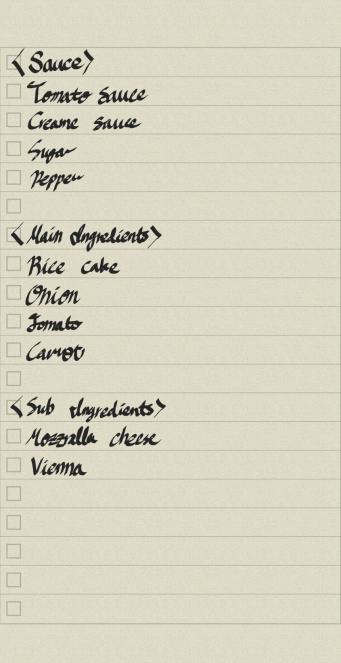 <Sauce>
Tomato Sauce
Creame sauce
Sugar
Pepper
<Main Ingredients>
Rice cake
Onion
Tomato
Carrot
<Sub Ingredients>
Mozzralla cheese
Vienna